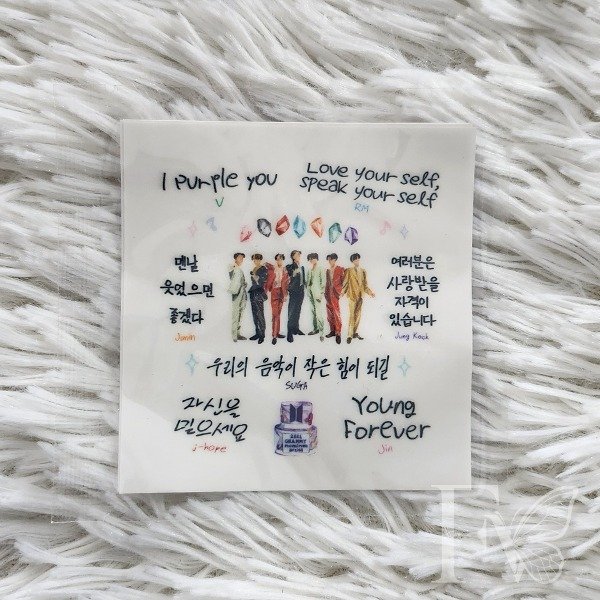 I purple you
V
Love your self,
speak your self
RM
맨날
웃었으면
좋겠다
Jimin
여러분은
사랑받을
자격이
있습니다
Jung Kook
우리의 음악이 작은 힘이 되길
SUGA
자신을
믿으세요
j-hope
2021
GRAMMY
NOMINATED
ARTIST
Young
Forever
Jin